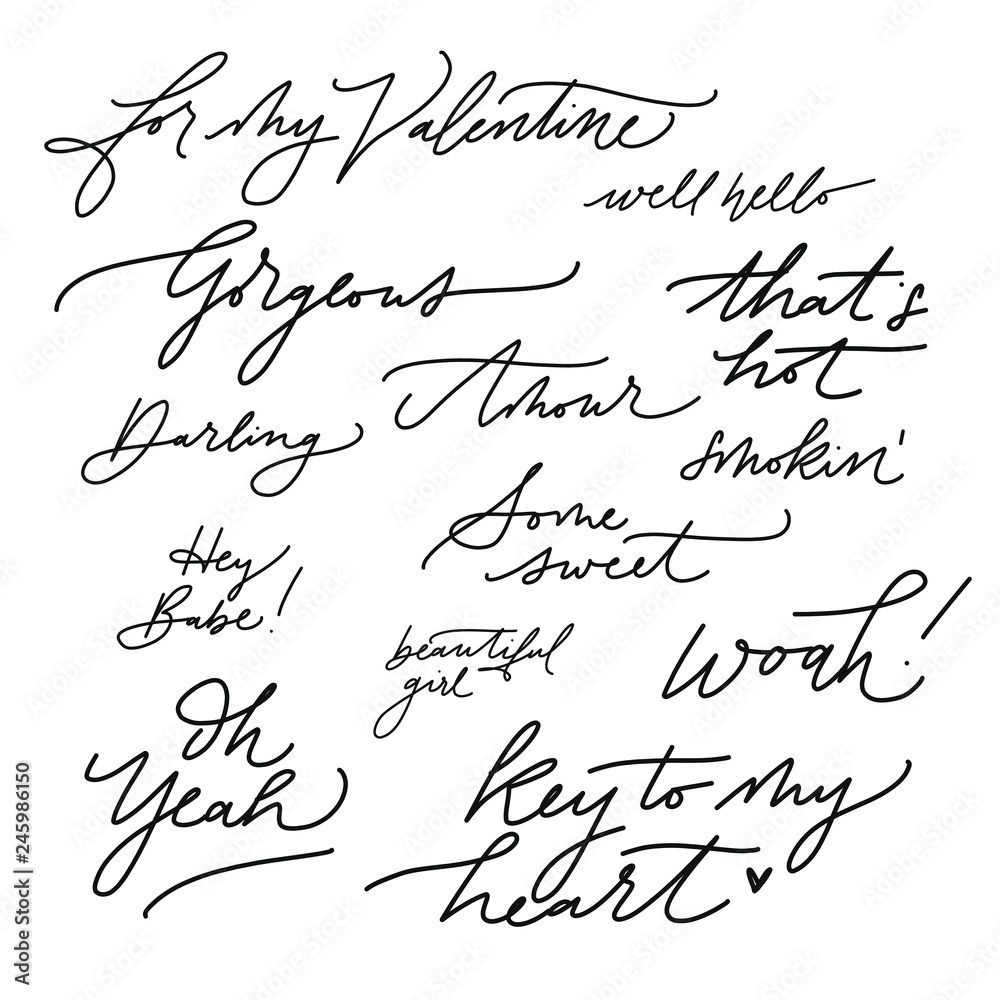 for my Valentine
well hello
Gorgeous
that's
hot
Amour
Darling
smokin'
Some
sweet
Hey
Babe!
beautiful
girl
woah!
Oh
Yeah
key to my
heart
Adobe Stock | #245986150